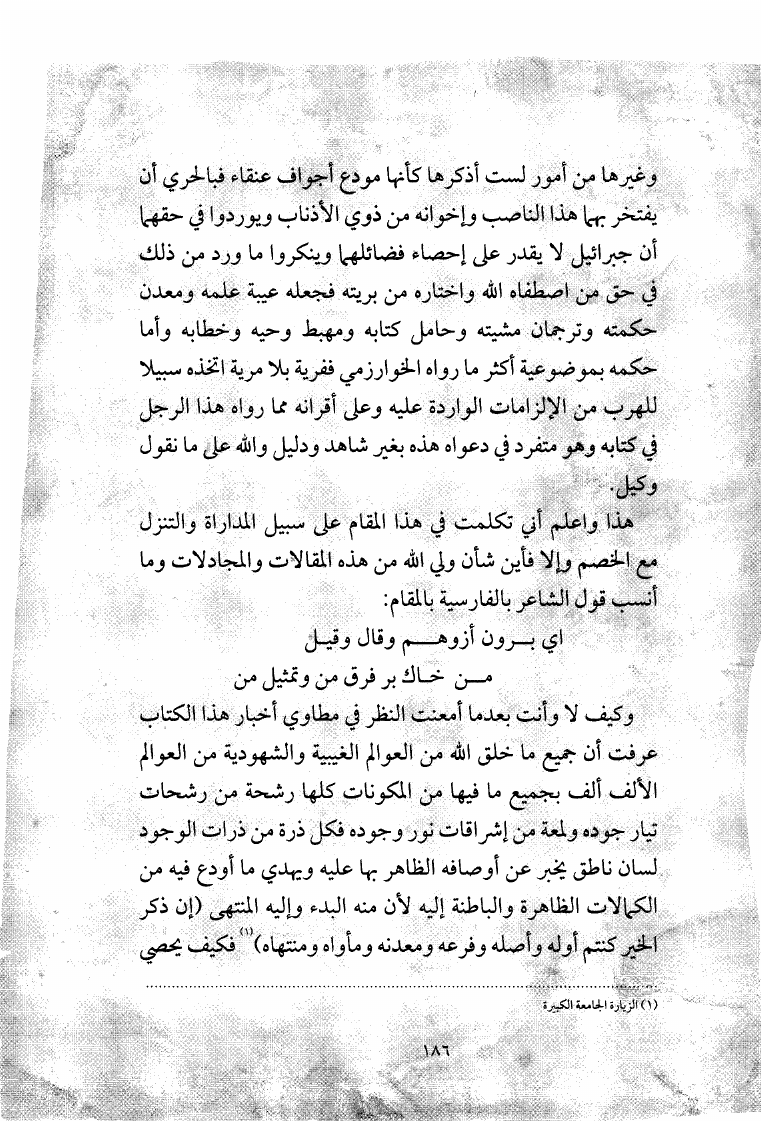 وغيرها من أمور لست أذكرها كأنها مودع أجواف عنقاء فبالحري أن
يفتخر بهما هذا الناصب وإخوانه من ذوي الأذناب ويوردوا في حقهما
أن جبرائيل لا يقدر على إحصاء فضائلهما وينكروا ما ورد من ذلك
في حق من اصطفاه الله واختاره من بريته فجعله عيبة علمه ومعدن
حكمته وترجمان مشيته وحامل كتابه ومهبط وحيه وخطابه وأما
حكمه بموضوعية أكثر ما رواه الخوارزمي ففرية بلا مرية اتخذه سبيلا
للهرب من الإلزامات الواردة عليه وعلى أقرانه مما رواه هذا الرجل
في كتابه وهو متفرد في دعواه هذه بغير شاهد ودليل والله على ما نقول
وكيل.
هذا واعلم أني تكلمت في هذا المقام على سبيل المداراة والتنزل
مع الخصم وإلا فأين شأن ولي الله من هذه المقالات والمجادلات وما
أنسب قول الشاعر بالفارسية بالمقام:
اي بـــرون أزوهـــــم وقال وقيـل
مـــن خـاك بر فرق من وتمثيل من
وكيف لا وأنت بعدما أمعنت النظر في مطاوي أخبار هذا الكتاب
عرفت أن جميع ما خلق الله من العوالم الغيبية والشهودية من العوالم
الألف ألف بجميع ما فيها من المكونات كلها رشحة من رشحات
تيار جوده ولمعة من إشراقات نور وجوده فكل ذرة من ذرات الوجود
لسان ناطق يخبر عن أوصافه الظاهر بها عليه ويهدي ما أودع فيه من
الكمالات الظاهرة والباطنة إليه لأن منه البدء وإليه المنتهى (إن ذكر
الخير كنتم أوله وأصله وفرعه ومعدنه ومأواه ومنتهاه)(١) فكيف يحصي
(١) الزيارة الجامعة الكبيرة
١٨٦